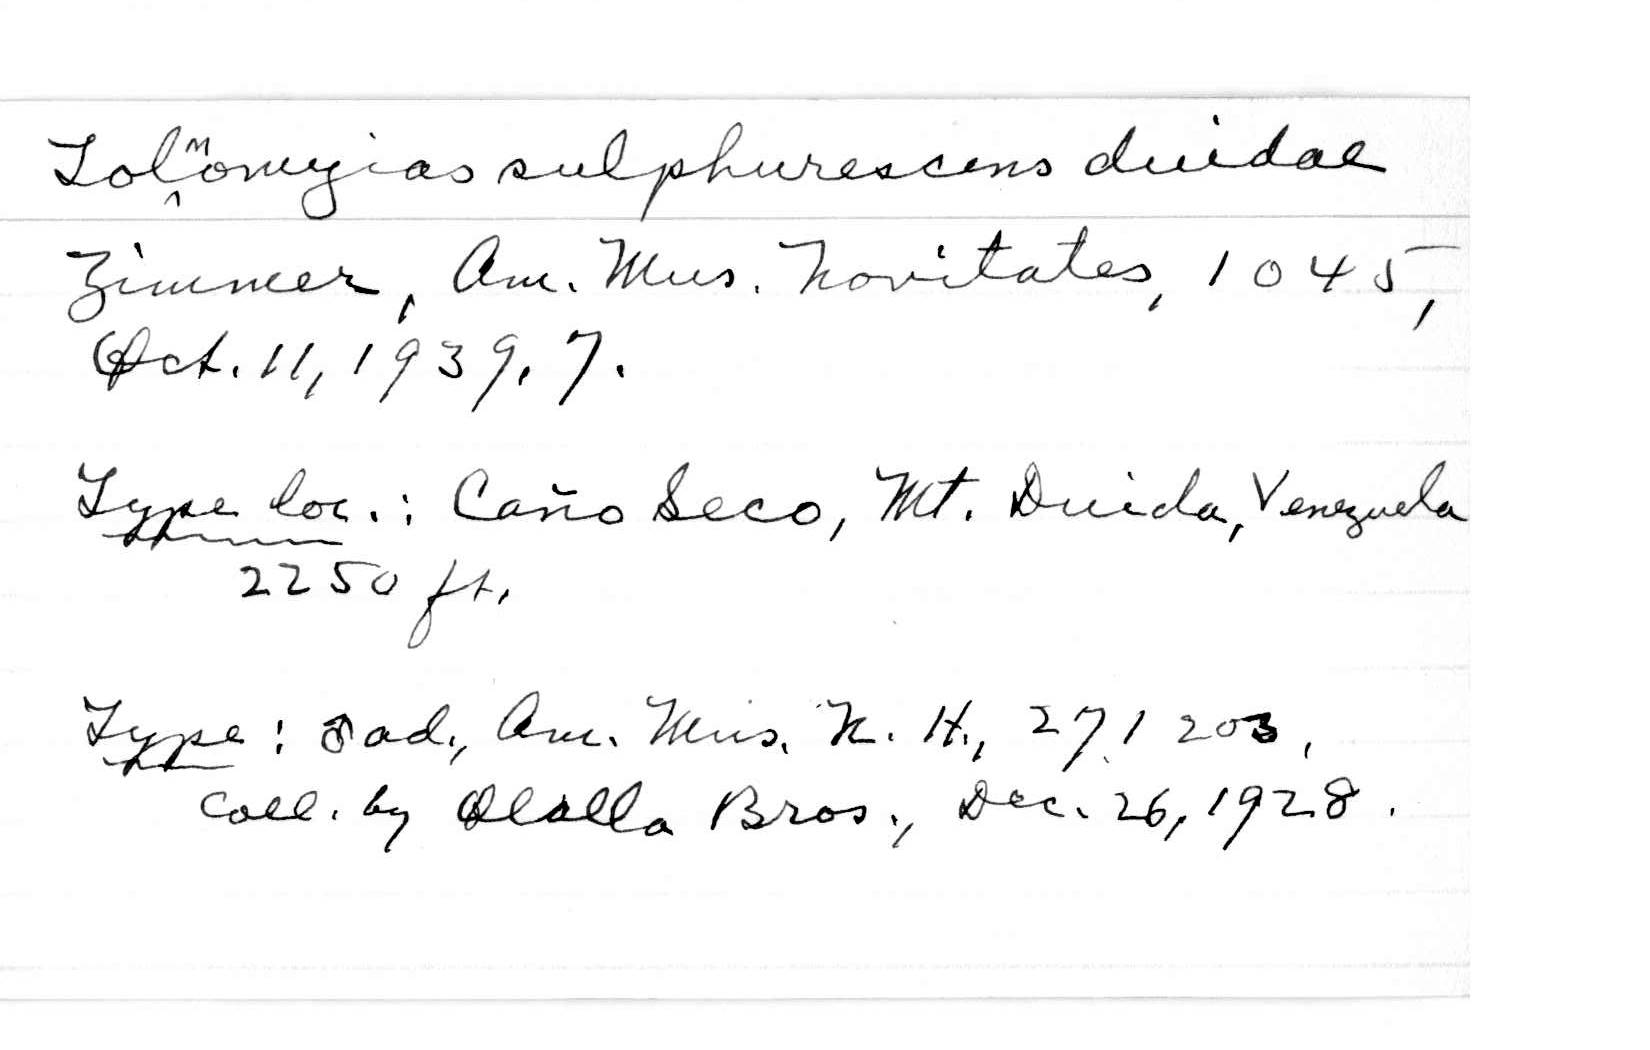 Tolmomyias sulphurescens duidae
Zimmer, Am. Mus. Novitates, 1045,
Oct. 11, 1939, 7.
Type loc.: Caño Seco, Mt. Duida, Venezuela
2250 ft.
Type: ♂ ad., Am. Mus. N. H., 271203,
Coll. by Olalla Bros., Dec. 26, 1928.